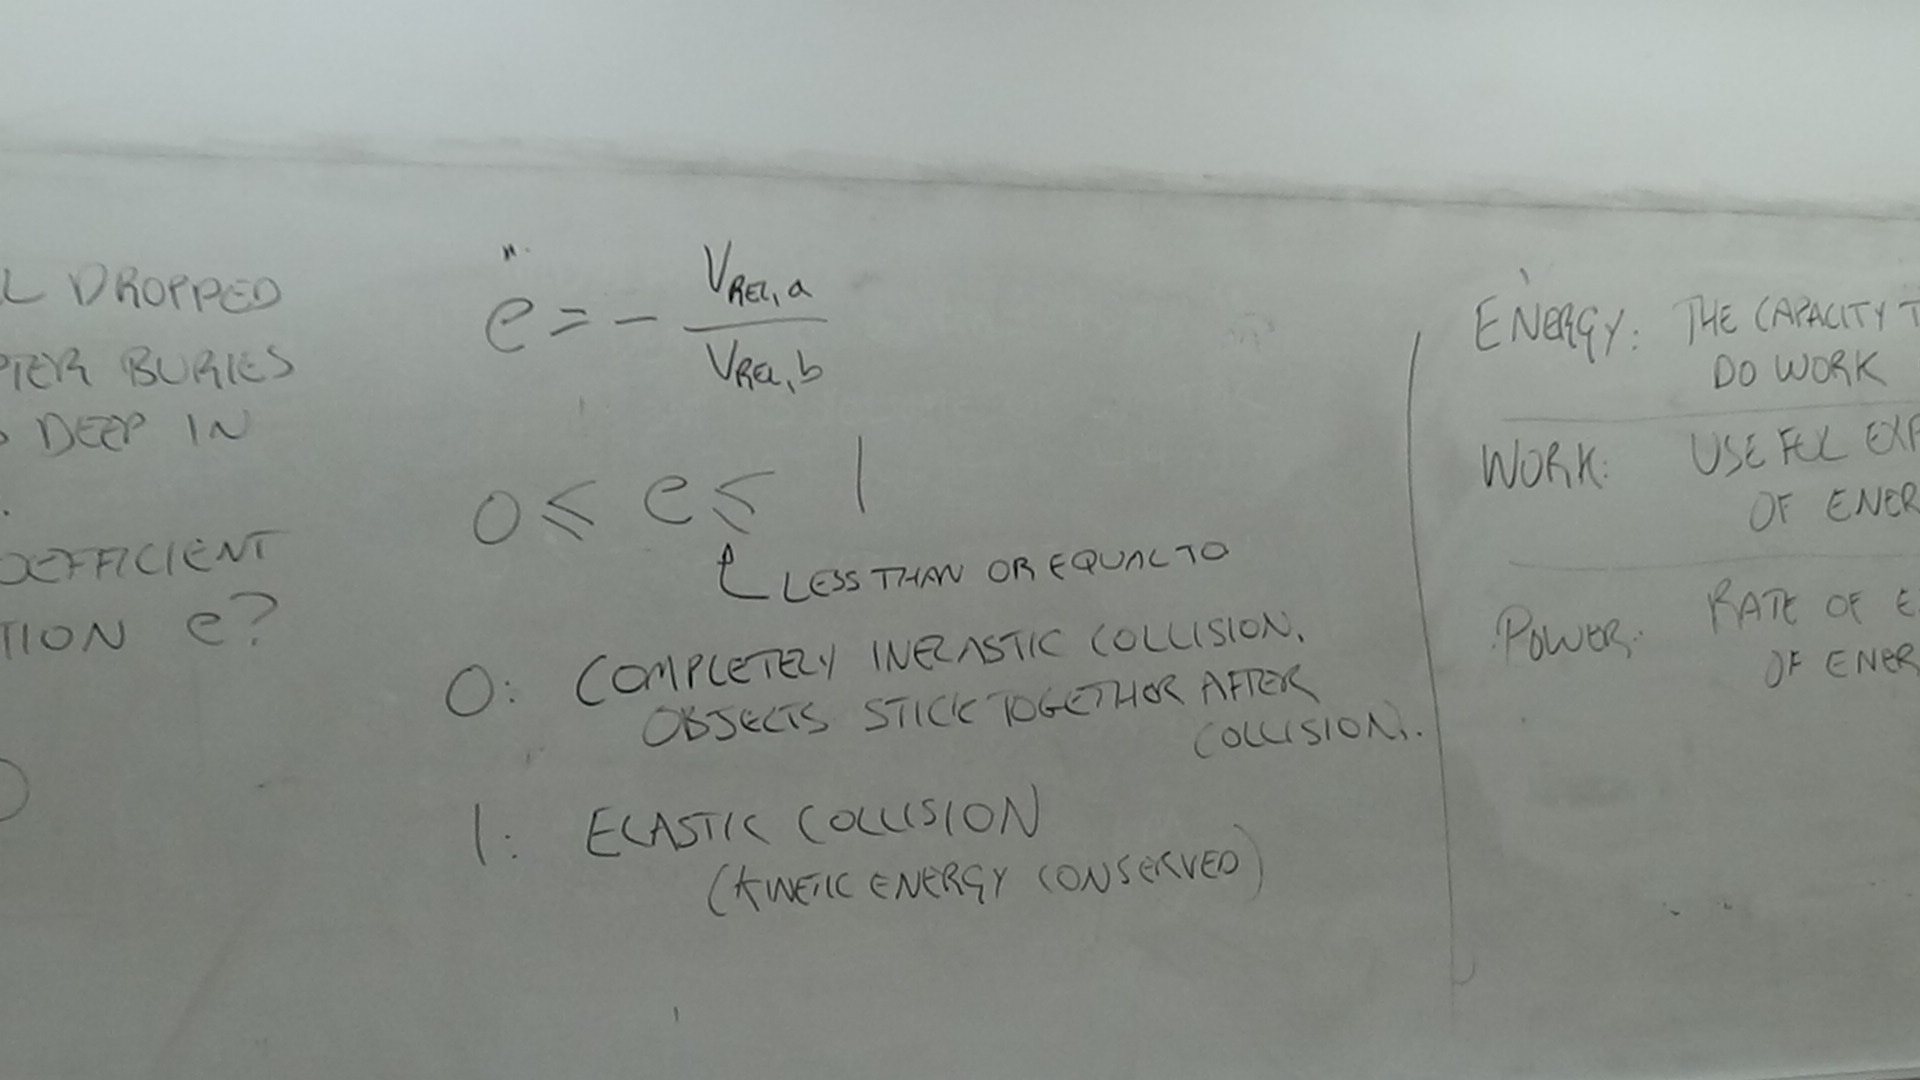 L DROPPED
BURIES
DEEP IN
OEFFICIENT
TION e?
e = - VREL,a / VREL,b
0 ≤ e ≤ 1
LESS THAN OR EQUAL TO
0: COMPLETELY INELASTIC COLLISION.
OBJECTS STICK TOGETHER AFTER
COLLISION.
1: ELASTIC COLLISION
(KINETIC ENERGY CONSERVED)
ENERGY: THE CAPACITY T
DO WORK
WORK: USEFUL EXP
OF ENER
POWER: RATE OF E
OF ENER